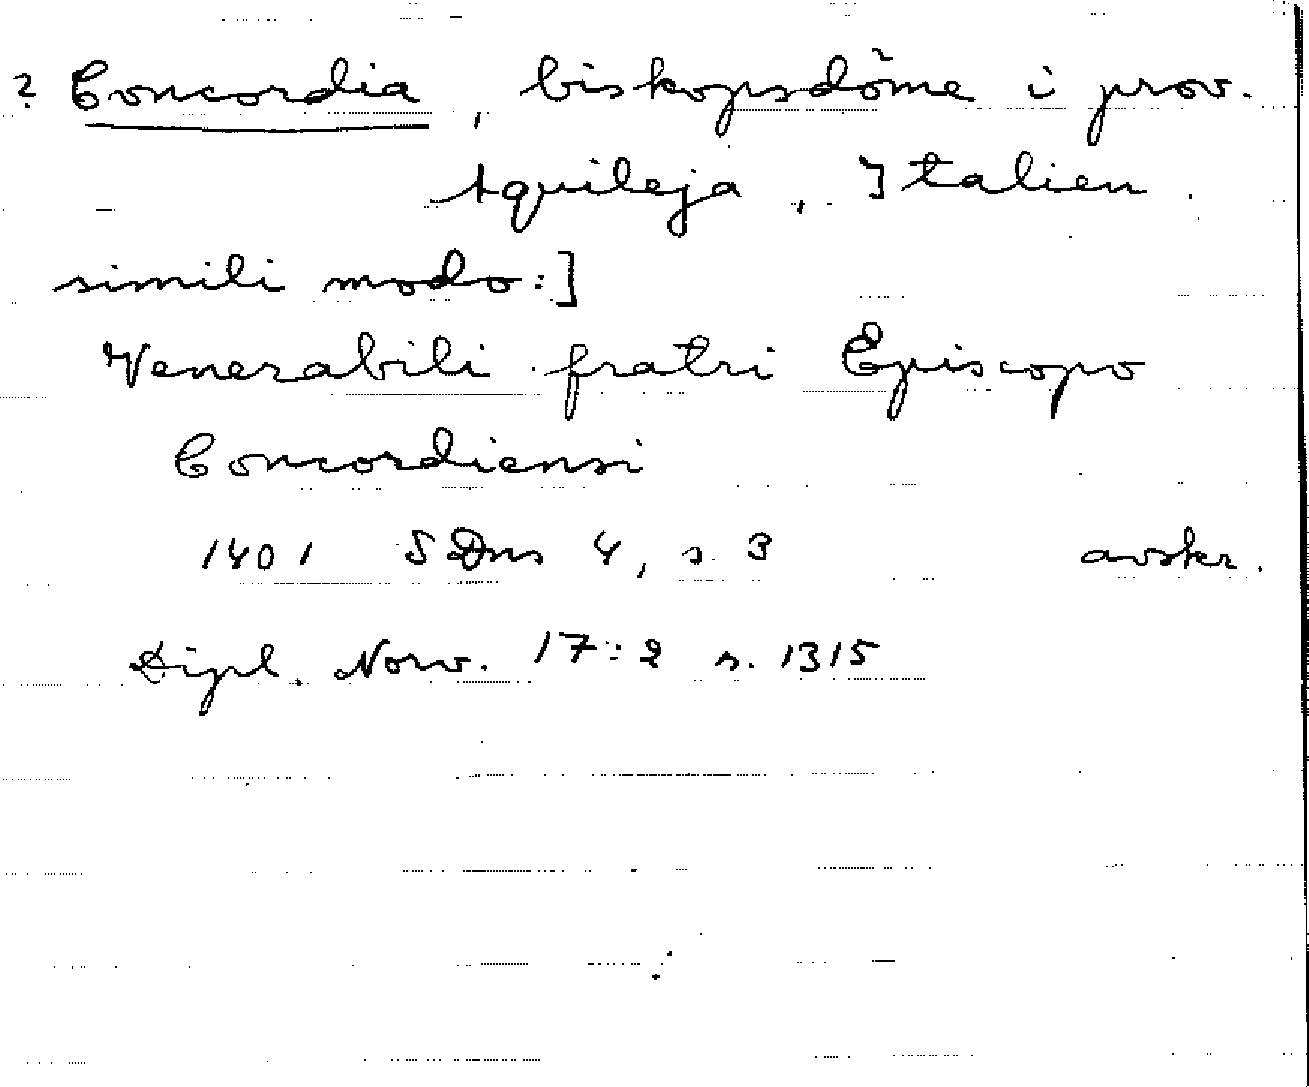 ? Concordia, biskopsdöme i prov.
Aquileja, Italien.
simili modo:]
Venerabili fratri Episcopo
Concordiensi
1401 SDns 4, s. 3 avskr.
Dipl. Norv. 17:2 s. 1315